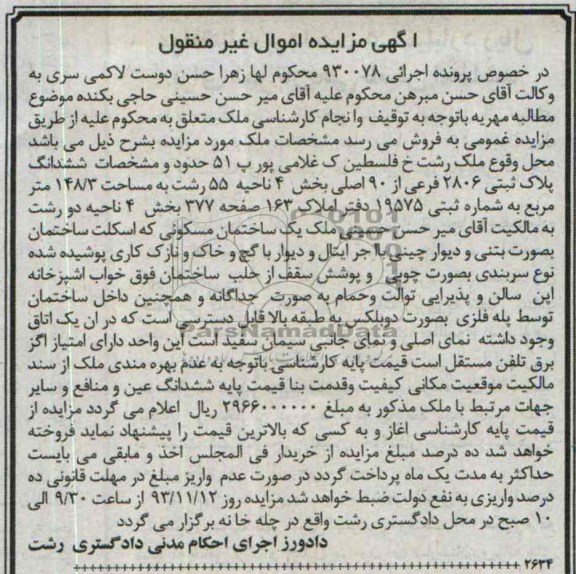 اگهی مزایده اموال غیر منقول
در خصوص پرونده اجرائی ۹۳۰۰۷۸ محکوم لها زهرا حسن دوست لاکمی سری به
وکالت آقای حسن مبرهن محکوم علیه آقای میر حسن حسینی حاجی بکنده موضوع
مطالبه مهریه باتوجه به توقیف وانجام کارشناسی ملک متعلق به محکوم علیه از طریق
مزایده غمومی به فروش می رسد مشخصات ملک مورد مزایده بشرح ذیل می باشد
محل وقوع ملک رشت خ فلسطین ک غلامی پور پ ۵۱ حدود و مشخصات ششدانگ
پلاک ثبتی ۲۸۰۶ فرعی از ۹۰ اصلی بخش ۴ ناحیه ۵۵ رشت به مساحت ۱۴۸/۳ متر
مربع به شماره ثبتی ۱۹۵۷۵ دفتر املاک ۱۶۳ صفحه ۳۷۷ بخش ۴ ناحیه دو رشت
به مالکیت آقای میر حسن حسینی ملک یک ساختمان مسکونی که اسکلت ساختمان
بصورت بتنی و دیوار چینی با جر ایتال و دیوار با گچ و خاک و نازک کاری پوشیده شده
نوع سربندی بصورت چوبی و پوشش سقف از حلب ساختمان فوق خواب اشپزخانه
این سالن و پذیرایی توالت وحمام به صورت جداگانه و همچنین داخل ساختمان
توسط پله فلزی بصورت دوبلکس به طبقه بالا قابل دسترسی است که در ان یک اتاق
وجود داشته نمای اصلی و نمای جانبی سیمان سفید است این واحد دارای امتیاز اگز
برق تلفن مستقل است قیمت پایه کارشناسی باتوجه به عدم بهره مندی ملک از سند
مالکیت موقعیت مکانی کیفیت وقدمت بنا قیمت پایه ششدانگ عین و منافع و سایر
جهات مرتبط با ملک مذکور به مبلغ ۲۹۶۶۰۰۰۰۰۰ ریال اعلام می گردد مزایده از
قیمت پایه کارشناسی اغاز و به کسی که بالاترین قیمت را پیشنهاد نماید فروخته
خواهد شد ده درصد مبلغ مزایده از خریدار فی المجلس اخذ و مابقی می بایست
حداکثر به مدت یک ماه پرداخت گردد در صورت عدم واریز مبلغ در مهلت قانونی ده
درصد واریزی به نفع دولت ضبط خواهد شد مزایده روز ۹۳/۱۱/۱۲ از ساعت ۹/۳۰ الی
۱۰ صبح در محل دادگستری رشت واقع در چله خانه برگزار می گردد
دادورز اجرای احکام مدنی دادگستری رشت
۲۶۳۴
ParsNamadData